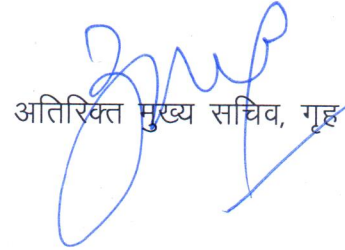 अतिरिक्त मुख्य सचिव, गृह